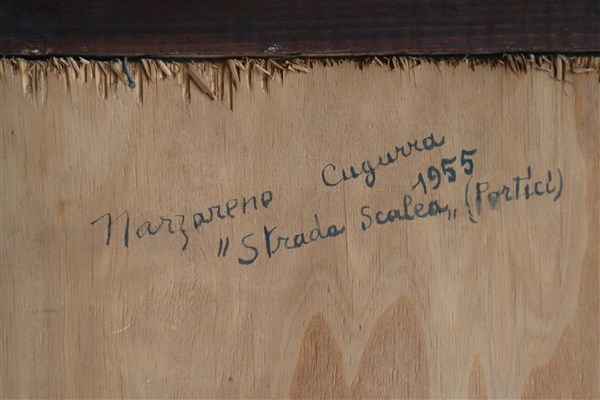 Narzareno Cugurra
1955
"Strada Scalea" (Portici)